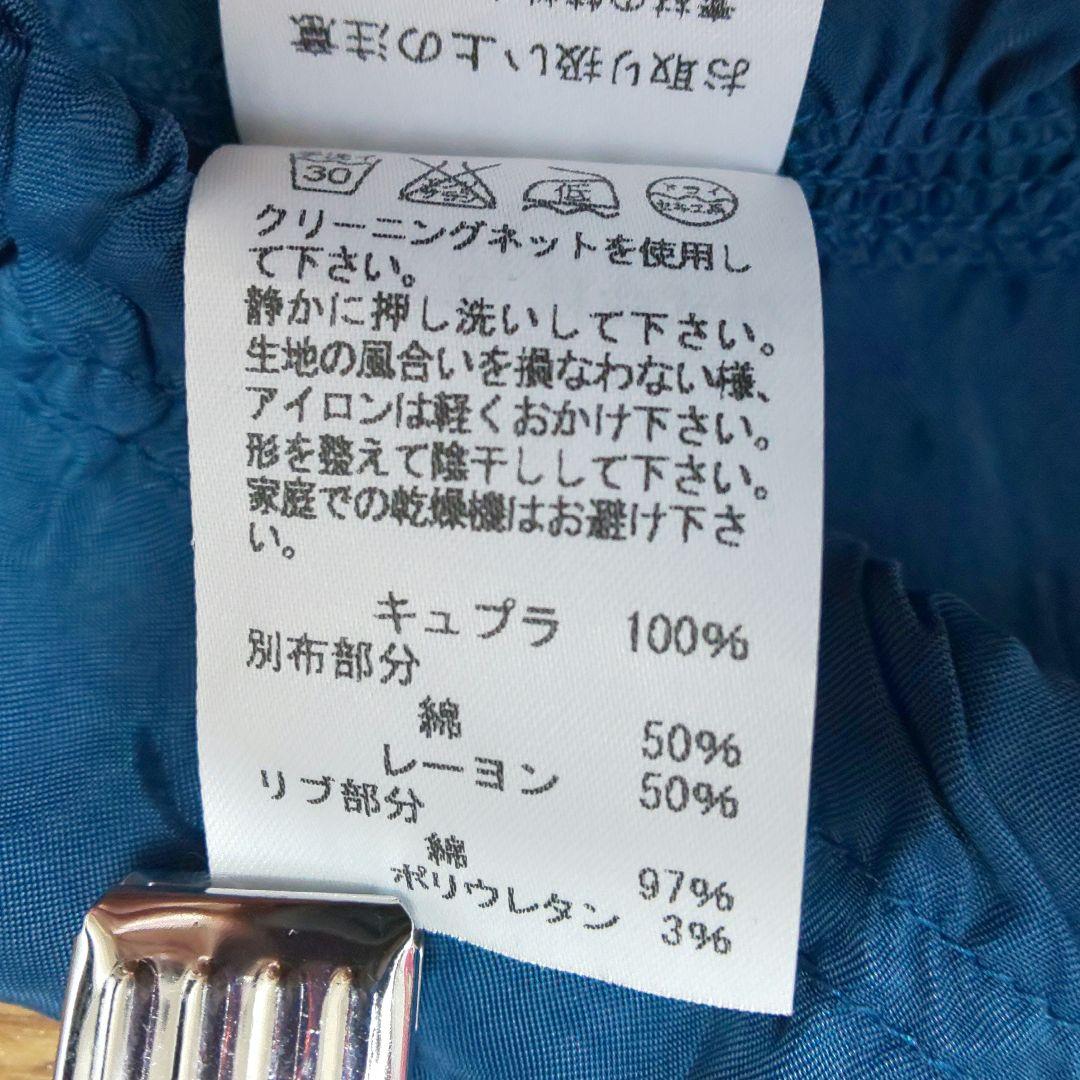 お取り扱い上の注意
30
低
ドライ
クリーニングネットを使用し
て下さい。
静かに押し洗いして下さい。
生地の風合いを損なわない様、
アイロンは軽くおかけ下さい。
形を整えて陰干しして下さい。
家庭での乾燥機はお避け下さ
い。
キュプラ 100%
別布部分
綿 50%
レーヨン 50%
リブ部分
綿 97%
ポリウレタン 3%